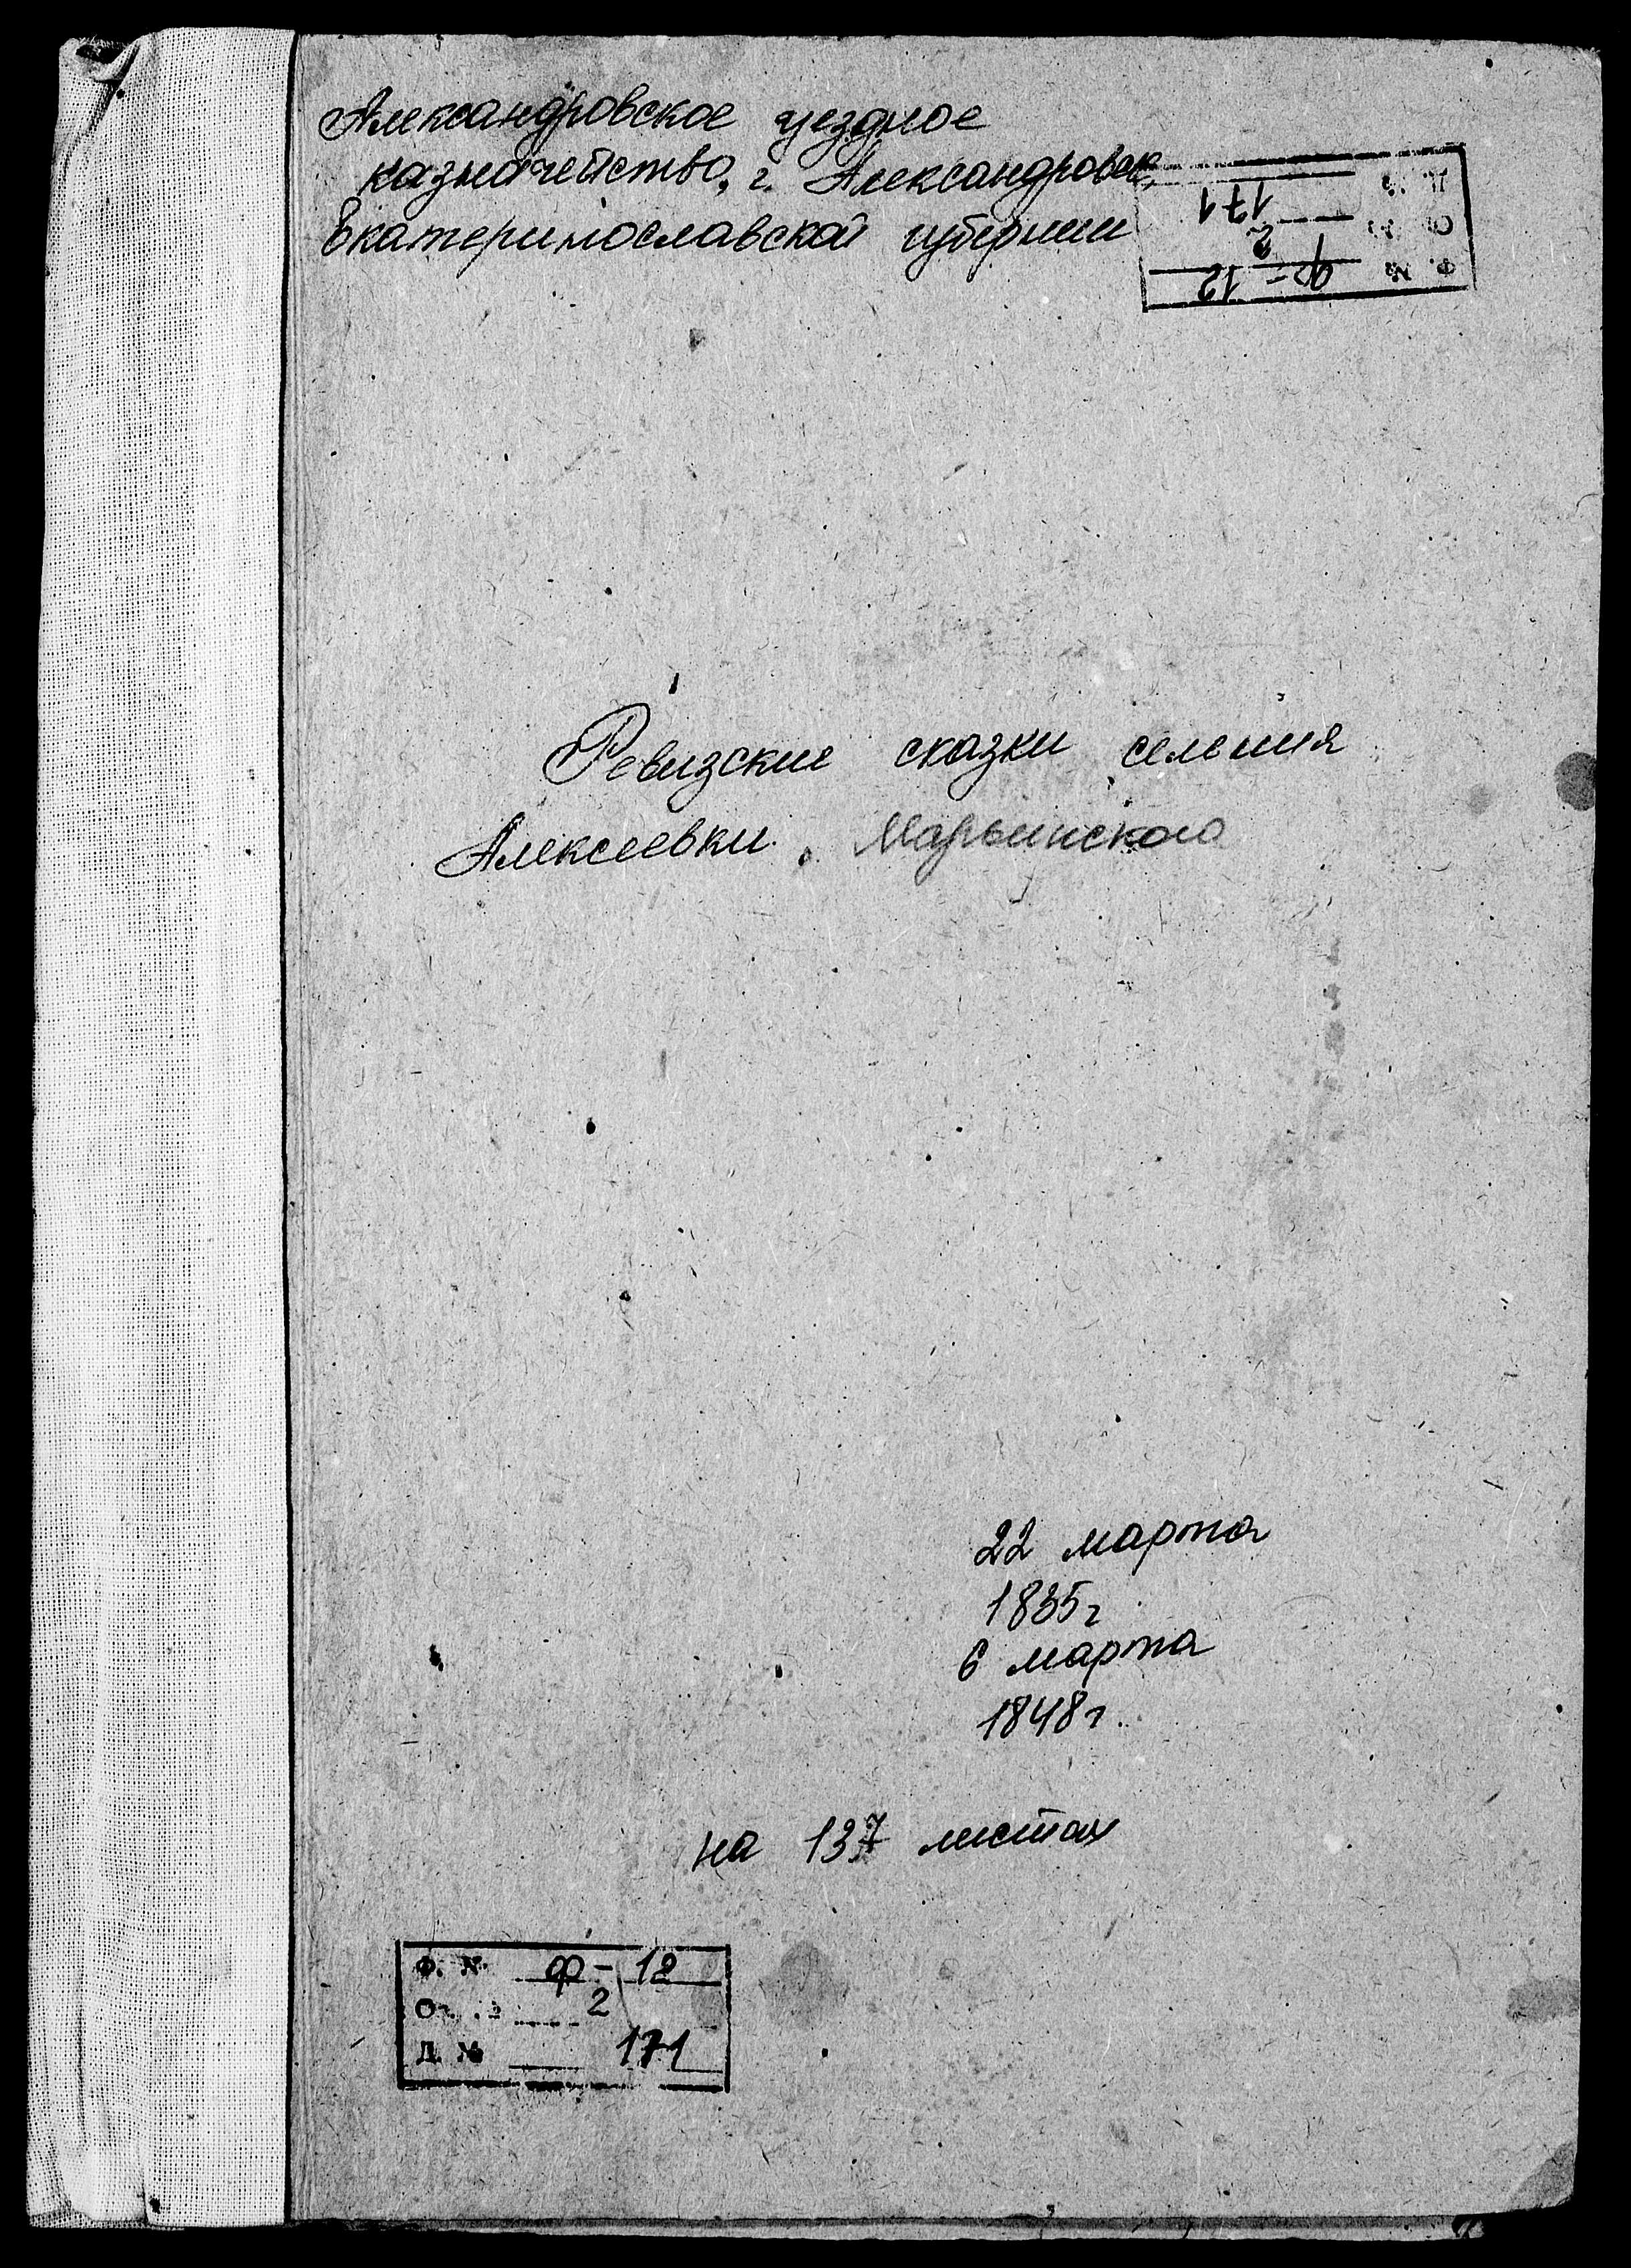 Александровское уездное
казначейство, г. Александровск,
Екатеринославской губернии
Д. № 171
О № 2
Ф. № Ф-12
Ревизские сказки селения
Алексеевки, Марьинского
22 марта
1835г
6 марта
1848г.
на 137 листах
Ф. № Ф-12
Оп. № 2
Д. № 171